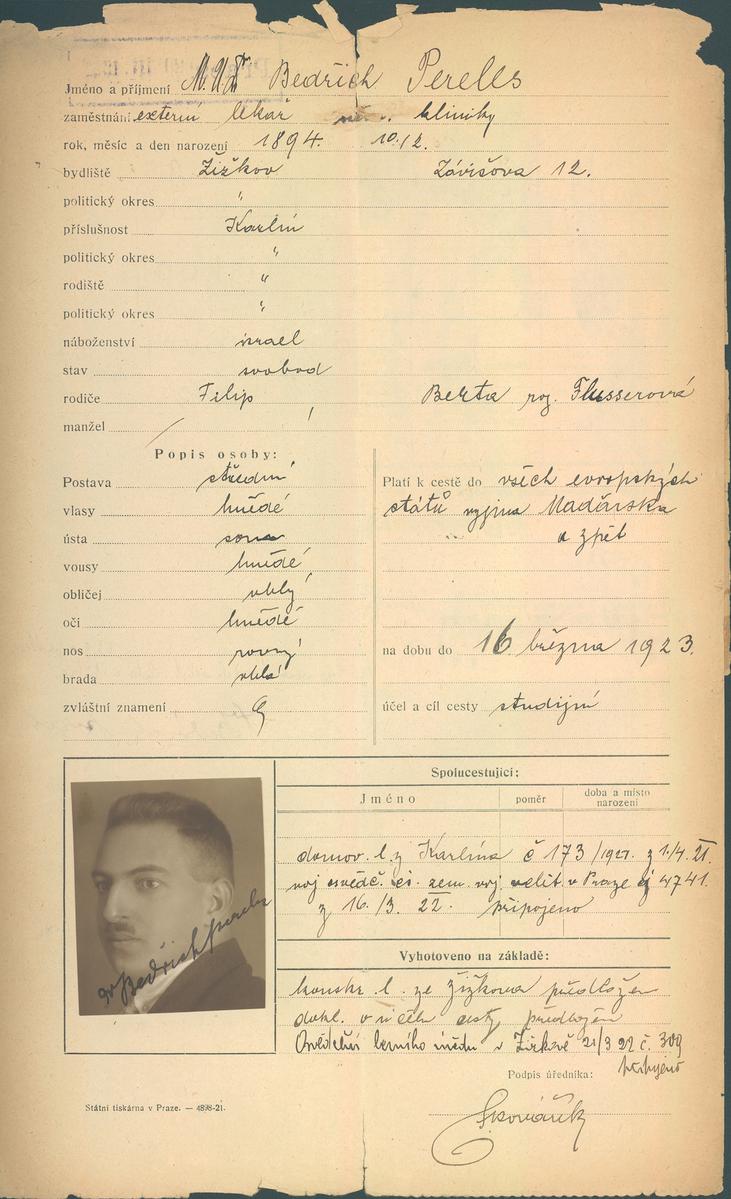 Jméno a příjmení M.U.Dr Bedřich Perells
zaměstnání externí lékař kliniky
rok, měsíc a den narození 1894. 10./2.
bydliště Žižkov Závišova 12.
politický okres "
příslušnost Karlín
politický okres "
rodiště "
politický okres "
náboženství israel
stav svobod
rodiče Filip Berta roz. Flusserová
manžel
Popis osoby:
Postava střední
vlasy hnědé
ústa
vousy hnědé
obličej oblý
oči hnědé
nos rovný
brada oblá
zvláštní znamení
Platí k cestě do všech evropských
států vyjma Maďarska
a zpět
na dobu do 16 března 1923.
účel a cíl cesty studijní
Dr Bedřich Perells
Spolucestující:
Jméno poměr doba a místo narození
domov. l. z Karlína č 173/1921. z 1./4. 21.
voj. osvědč. zem. voj. velit. v Praze čj 4741.
z 16./3. 22. připojeno
Vyhotoveno na základě:
konskr. l. ze Žižkova předložen
dokl. o účelu cesty předložen
Osvědčení berního úřadu v Žižkově 21/3 22 č. 309
připojeno
Podpis úředníka:
Státní tiskárna v Praze. — 4898-21.